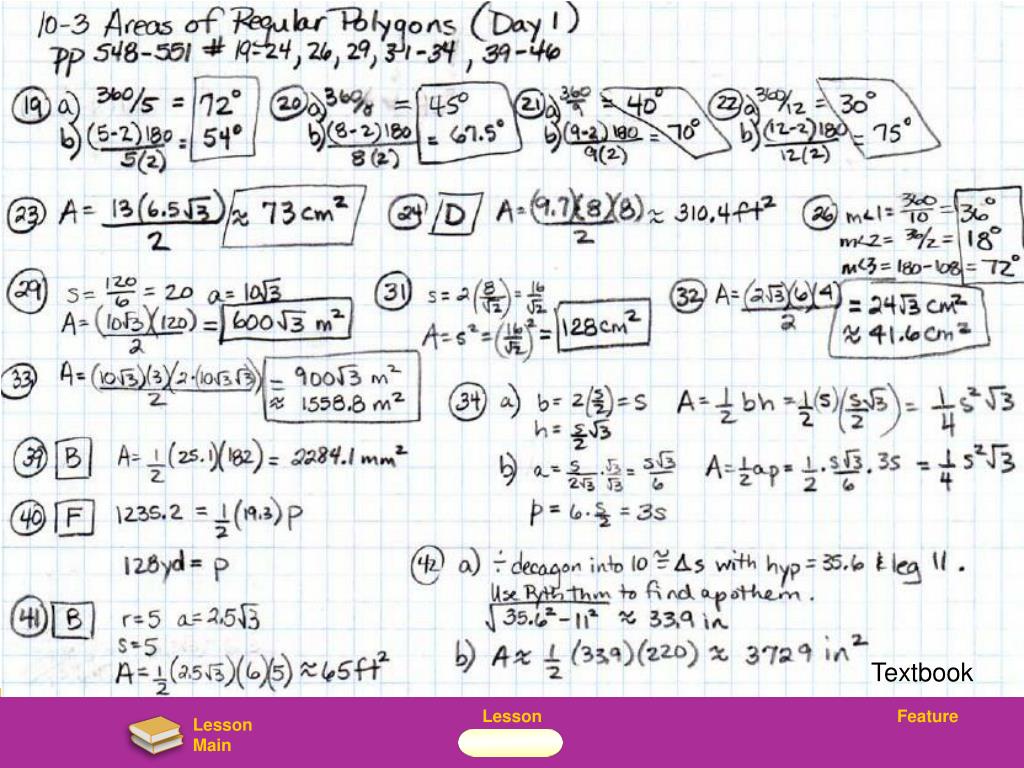 10-3 Areas of Regular Polygons (Day 1)
pp 548-551 # 19-24, 26, 29, 31-34, 39-46
19 a) 360/5 = 72°
b) (5-2)180/5(2) = 54°
20 a) 360/8 = 45°
b) (8-2)180/8(2) = 67.5°
21 a) 360/9 = 40°
b) (9-2)180/9(2) = 70°
22 a) 360/12 = 30°
b) (12-2)180/12(2) = 75°
23 A = 13(6.5√3)/2 ≈ 73 cm²
24 D A = (9.7)(8)(8)/2 ≈ 310.4 ft²
26 m<1 = 360/10 = 36°
m<2 = 36/2 = 18°
m<3 = 180-108 = 72°
29 s = 120/6 = 20 a = 10√3
A = (10√3)(120)/2 = 600√3 m²
31 s = 2(8/√2) = 16/√2
A = s² = (16/√2)² = 128 cm²
32 A = (2√3)(6)(4)/2 = 24√3 cm²
≈ 41.6 cm²
33 A = (10√3)(3)(2·(10√3√3))/2 = 900√3 m²
≈ 1558.8 m²
34 a) b = 2(s/2) = s A = 1/2 bh = 1/2(s)(s√3/2) = 1/4 s²√3
h = s/2 √3
b) a = s/2√3 · √3/√3 = s√3/6 A = 1/2 ap = 1/2 · s√3/6 · 3s = 1/4 s²√3
p = 6 · s/2 = 3s
39 B A = 1/2 (25.1)(182) = 2284.1 mm²
40 F 1235.2 = 1/2 (19.3) p
128 yd = p
41 B r = 5 a = 2.5√3
s = 5
A = 1/2 (2.5√3)(6)(5) ≈ 65 ft²
42 a) ÷ decagon into 10 ≅ Δs with hyp = 35.6 & leg 11.
Use Pyth Thm to find apothem.
√35.6²-11² ≈ 33.9 in
b) A ≈ 1/2 (33.9)(220) ≈ 3729 in²
Textbook
Lesson
Main
Lesson
Feature